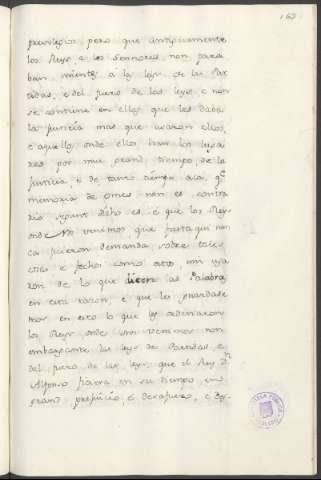 162
previlegio, pero que antiguamente
los Reys, e los Sennores non para
ban mientes á la ley de las Par
tidas, e del fuero de las leys, e non
se contiene en ellos que les daba
la justicia mas que usaron ellos,
e aquello onde ellos han los luga
res por mui grand tiempo de la
justicia, e de tanto tiempo acá, qe
memoria de omes non es contra
rio segunt dicho es, e que los Reys
onde Nos venimos que fasta qui nun
ca ficieron demanda sobre tales
cosas e fechos como estos, nin usa
ron de lo que dicen las Palabras
en esta razon, e que les guardase
mos en esto lo que les ordenaron
los Reys onde Nos venimos non
embargante las leys de Partidas e
del fuero de las leys, que el Rey Dn
Alfonso ficiera en su tiempo en
grand perjuicio, e desafuero, e